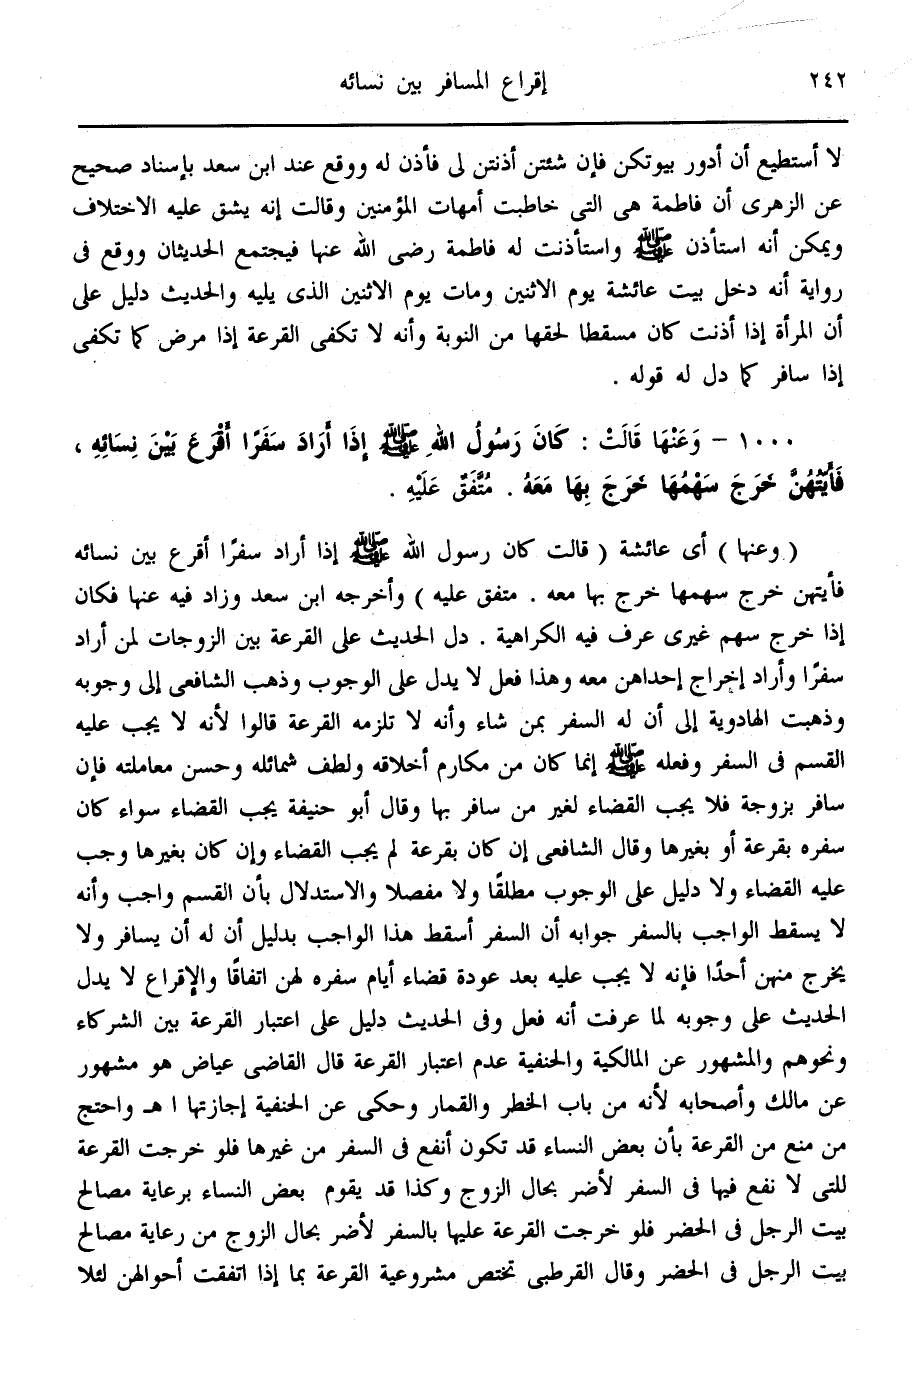 ٢٤٢
إقراع المسافر بين نسائه
لا أستطيع أن أدور بيوتكن فإن شئتن أذنتن لى فأذن له ووقع عند ابن سعد بإسناد صحيح
عن الزهرى أن فاطمة هى التى خاطبت أمهات المؤمنين وقالت إنه يشق عليه الاختلاف
ويمكن أنه استأذن ﷺ واستأذنت له فاطمة رضى الله عنها فيجتمع الحديثان ووقع فى
رواية أنه دخل بيت عائشة يوم الاثنين ومات يوم الاثنين الذى يليه والحديث دليل على
أن المرأة إذا أذنت كان مسقطا لحقها من النوبة وأنه لا تكفى القرعة إذا مرض كما تكفى
إذا سافر كما دل له قوله .
١٠٠٠ – وَعَنْهَا قَالَتْ : كَانَ رَسُولُ اللهِ ﷺ إِذَا أَرَادَ سَفَرًا أَقْرَعَ بَيْنَ نِسَائِهِ ،
فَأَيَّتُهُنَّ خَرَجَ سَهْمُهَا خَرَجَ بِهَا مَعَهُ . مُتَّفَقٌ عَلَيْهِ .
( وعنها ) أى عائشة ( قالت كان رسول الله ﷺ إذا أراد سفرًا أقرع بين نسائه
فأيتهن خرج سهمها خرج بها معه . متفق عليه ) وأخرجه ابن سعد وزاد فيه عنها فكان
إذا خرج سهم غيرى عرف فيه الكراهية . دل الحديث على القرعة بين الزوجات لمن أراد
سفرًا وأراد إخراج إحداهن معه وهذا فعل لا يدل على الوجوب وذهب الشافعى إلى وجوبه
وذهبت الهادوية إلى أن له السفر بمن شاء وأنه لا تلزمه القرعة قالوا لأنه لا يجب عليه
القسم فى السفر وفعله ﷺ إنما كان من مكارم أخلاقه ولطف شمائله وحسن معاملته فإن
سافر بزوجة فلا يجب القضاء لغير من سافر بها وقال أبو حنيفة يجب القضاء سواء كان
سفره بقرعة أو بغيرها وقال الشافعى إن كان بقرعة لم يجب القضاء وإن كان بغيرها وجب
عليه القضاء ولا دليل على الوجوب مطلقًا ولا مفصلا والاستدلال بأن القسم واجب وأنه
لا يسقط الواجب بالسفر جوابه أن السفر أسقط هذا الواجب بدليل أن له أن يسافر ولا
يخرج منهن أحدًا فإنه لا يجب عليه بعد عودة قضاء أيام سفره لهن اتفاقًا والإقراع لا يدل
الحديث على وجوبه لما عرفت أنه فعل وفى الحديث دليل على اعتبار القرعة بين الشركاء
ونحوهم والمشهور عن المالكية والحنفية عدم اعتبار القرعة قال القاضى عياض هو مشهور
عن مالك وأصحابه لأنه من باب الخطر والقمار وحكى عن الحنفية إجازتها ا هـ واحتج
من منع من القرعة بأن بعض النساء قد تكون أنفع فى السفر من غيرها فلو خرجت القرعة
للتى لا نفع فيها فى السفر لأضر بحال الزوج وكذا قد يقوم بعض النساء برعاية مصالح
بيت الرجل فى الحضر فلو خرجت القرعة عليها بالسفر لأضر بحال الزوج من رعاية مصالح
بيت الرجل فى الحضر وقال القرطبى تختص مشروعية القرعة بما إذا اتفقت أحوالهن لئلا